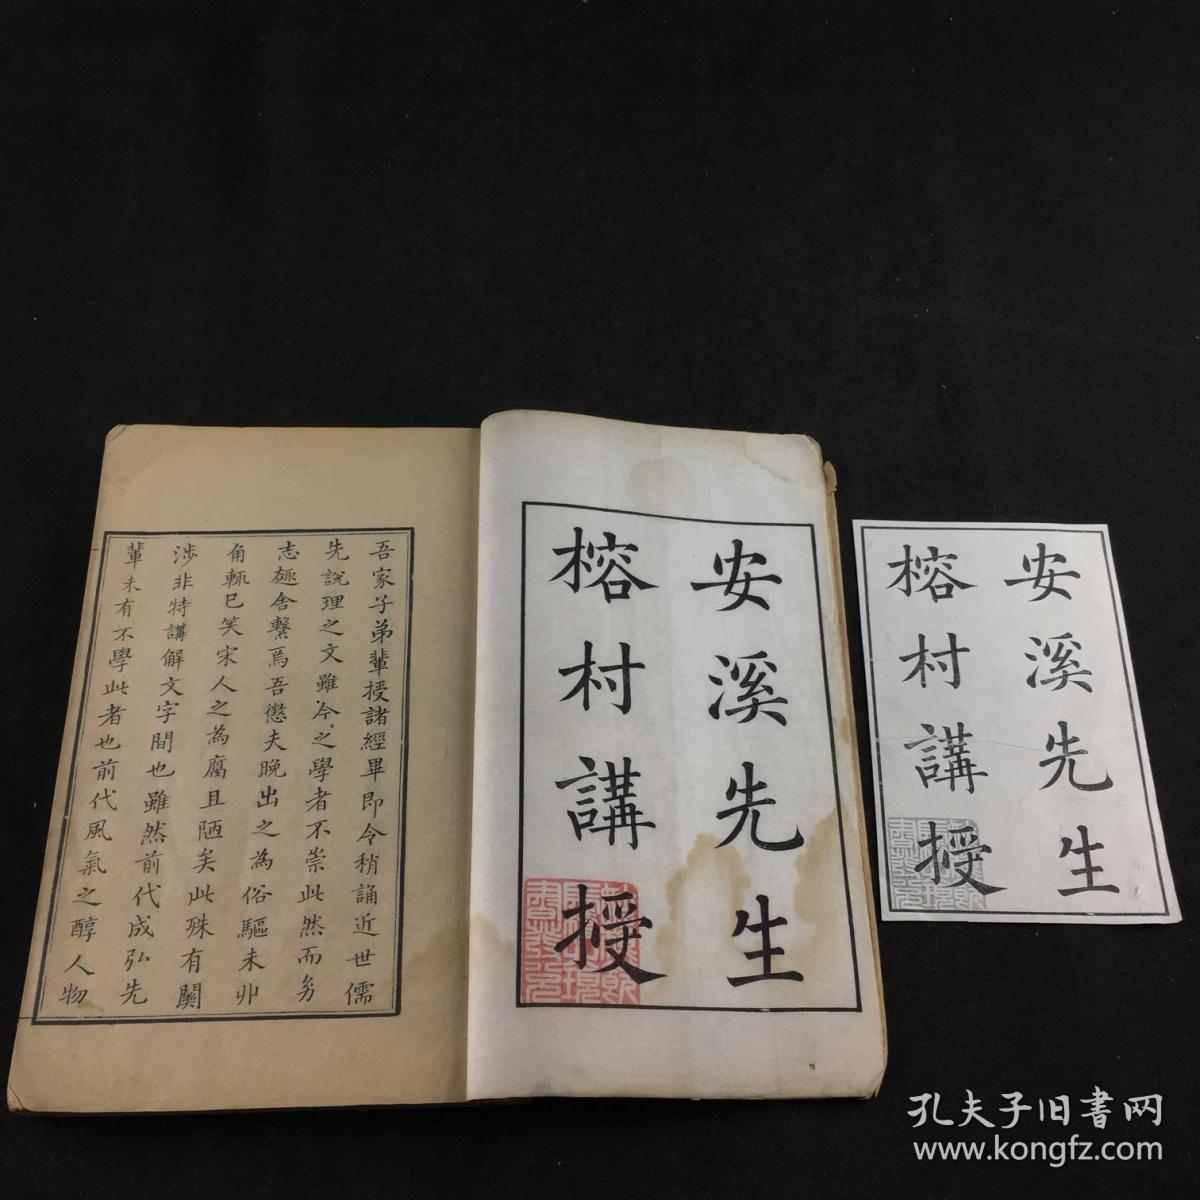 安溪先生
榕村講授
吾家子弟輩授諸經畢即令稍誦近世儒
先說理之文雖今之學者不崇此然而劣
志趣舍繫焉吾懲夫晚出之為俗驅未丱
角輒已笑宋人之為腐且陋矣此殊有關
涉非特講解文字間也雖然前代成弘先
輩未有不學此者也前代風氣之醇人物
安溪先生
榕村講授
孔夫子旧書网
www.kongfz.com